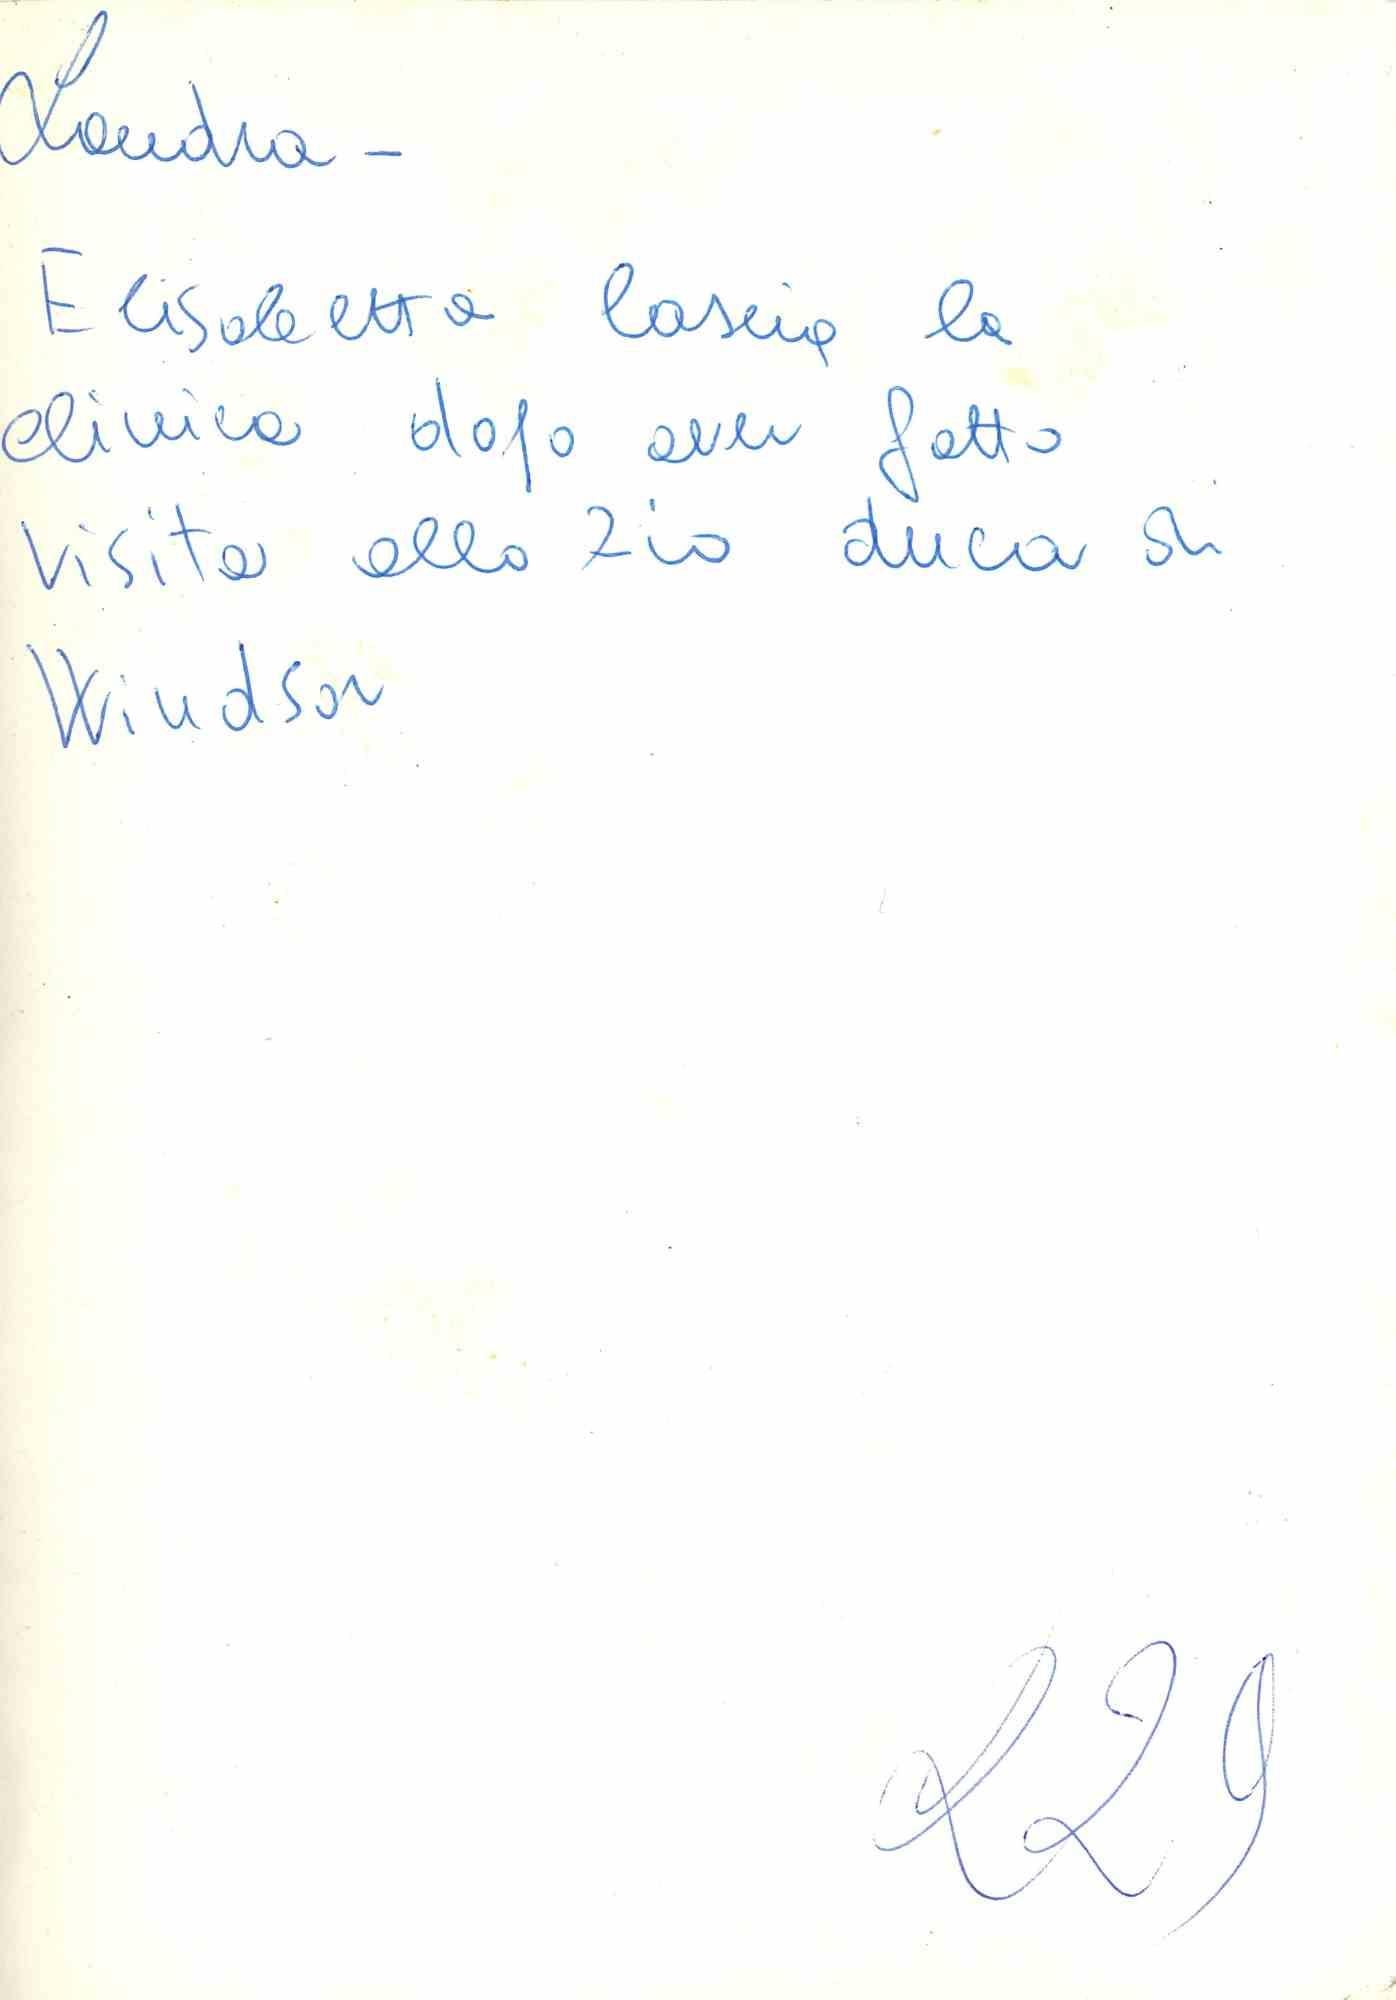 Londra -
Elisabetta lascia la
clinica dopo aver fatto
visita allo zio duca di
Windsor
L29